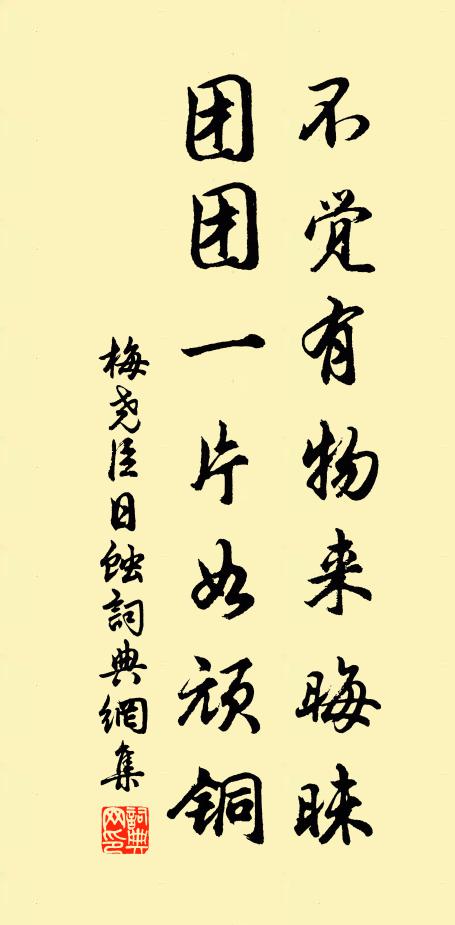 不觉有物来晦昧
团团一片如顽铜
梅尧臣日蚀詞典網集
詞典網印